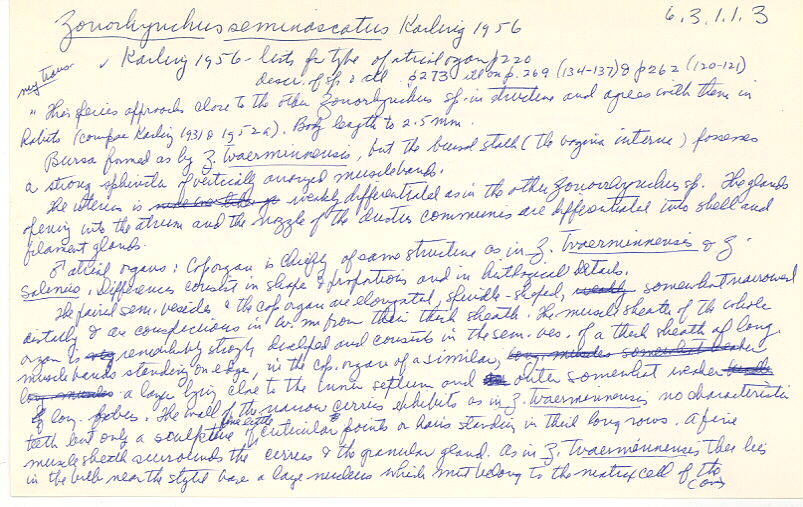 Zonorhynchus seminascatus Karling 1956 6.3.1.1.3
my trans. ✓ Karling 1956 - lists for type of atrial organ p 220
descr. of sp. & p273 p. 269 (134-137) & p 262 (120-121)
" This species approaches close to the other Zonorhynchus sp. in structure and agrees with them in
habitus (compare Karling 1931 & 1952a). Body length to 2.5 mm.
Bursa formed as by Z. tvaerminnensis, but the bursal stalk (the vagina interna) possesses
a strong sphincter of vertically arranged muscle bands.
The uterus is weakly differentiated as in the other Zonorhynchus sp. The glands
opening into the atrium and the nozzle of the ductus communis are differentiated into shell and
filament glands.
♂ atrial organs: Cop organ is chiefly of same structure as in Z. tvaerminnensis & Z.
salinus. Differences consist in shape & proportions and in histological details.
The paired sem. vesicles & the cop organ are elongated, spindle-shaped, somewhat narrowed
distally & are conspicuous in from their thick sheath. The muscle sheath of the whole
organ is remarkably strongly developed and consists in the sem. ves. of a thick sheath of long.
muscle bands standing on edge, in the cop. organ of a similar,
a layer lying close to the inner septum and outer somewhat weaker
of long. fibers. The wall of the narrow cirrus exhibits as in Z. tvaerminnensis no characteristic
teeth but only a sculpture of fine little cuticular points or hairs standing in thick long rows. A fine
muscle sheath surrounds the cirrus & the granular gland. As in Z. tvaerminnensis there lies
in the bulb near the stylet base a large nucleus which must belong to the matrix cell of the